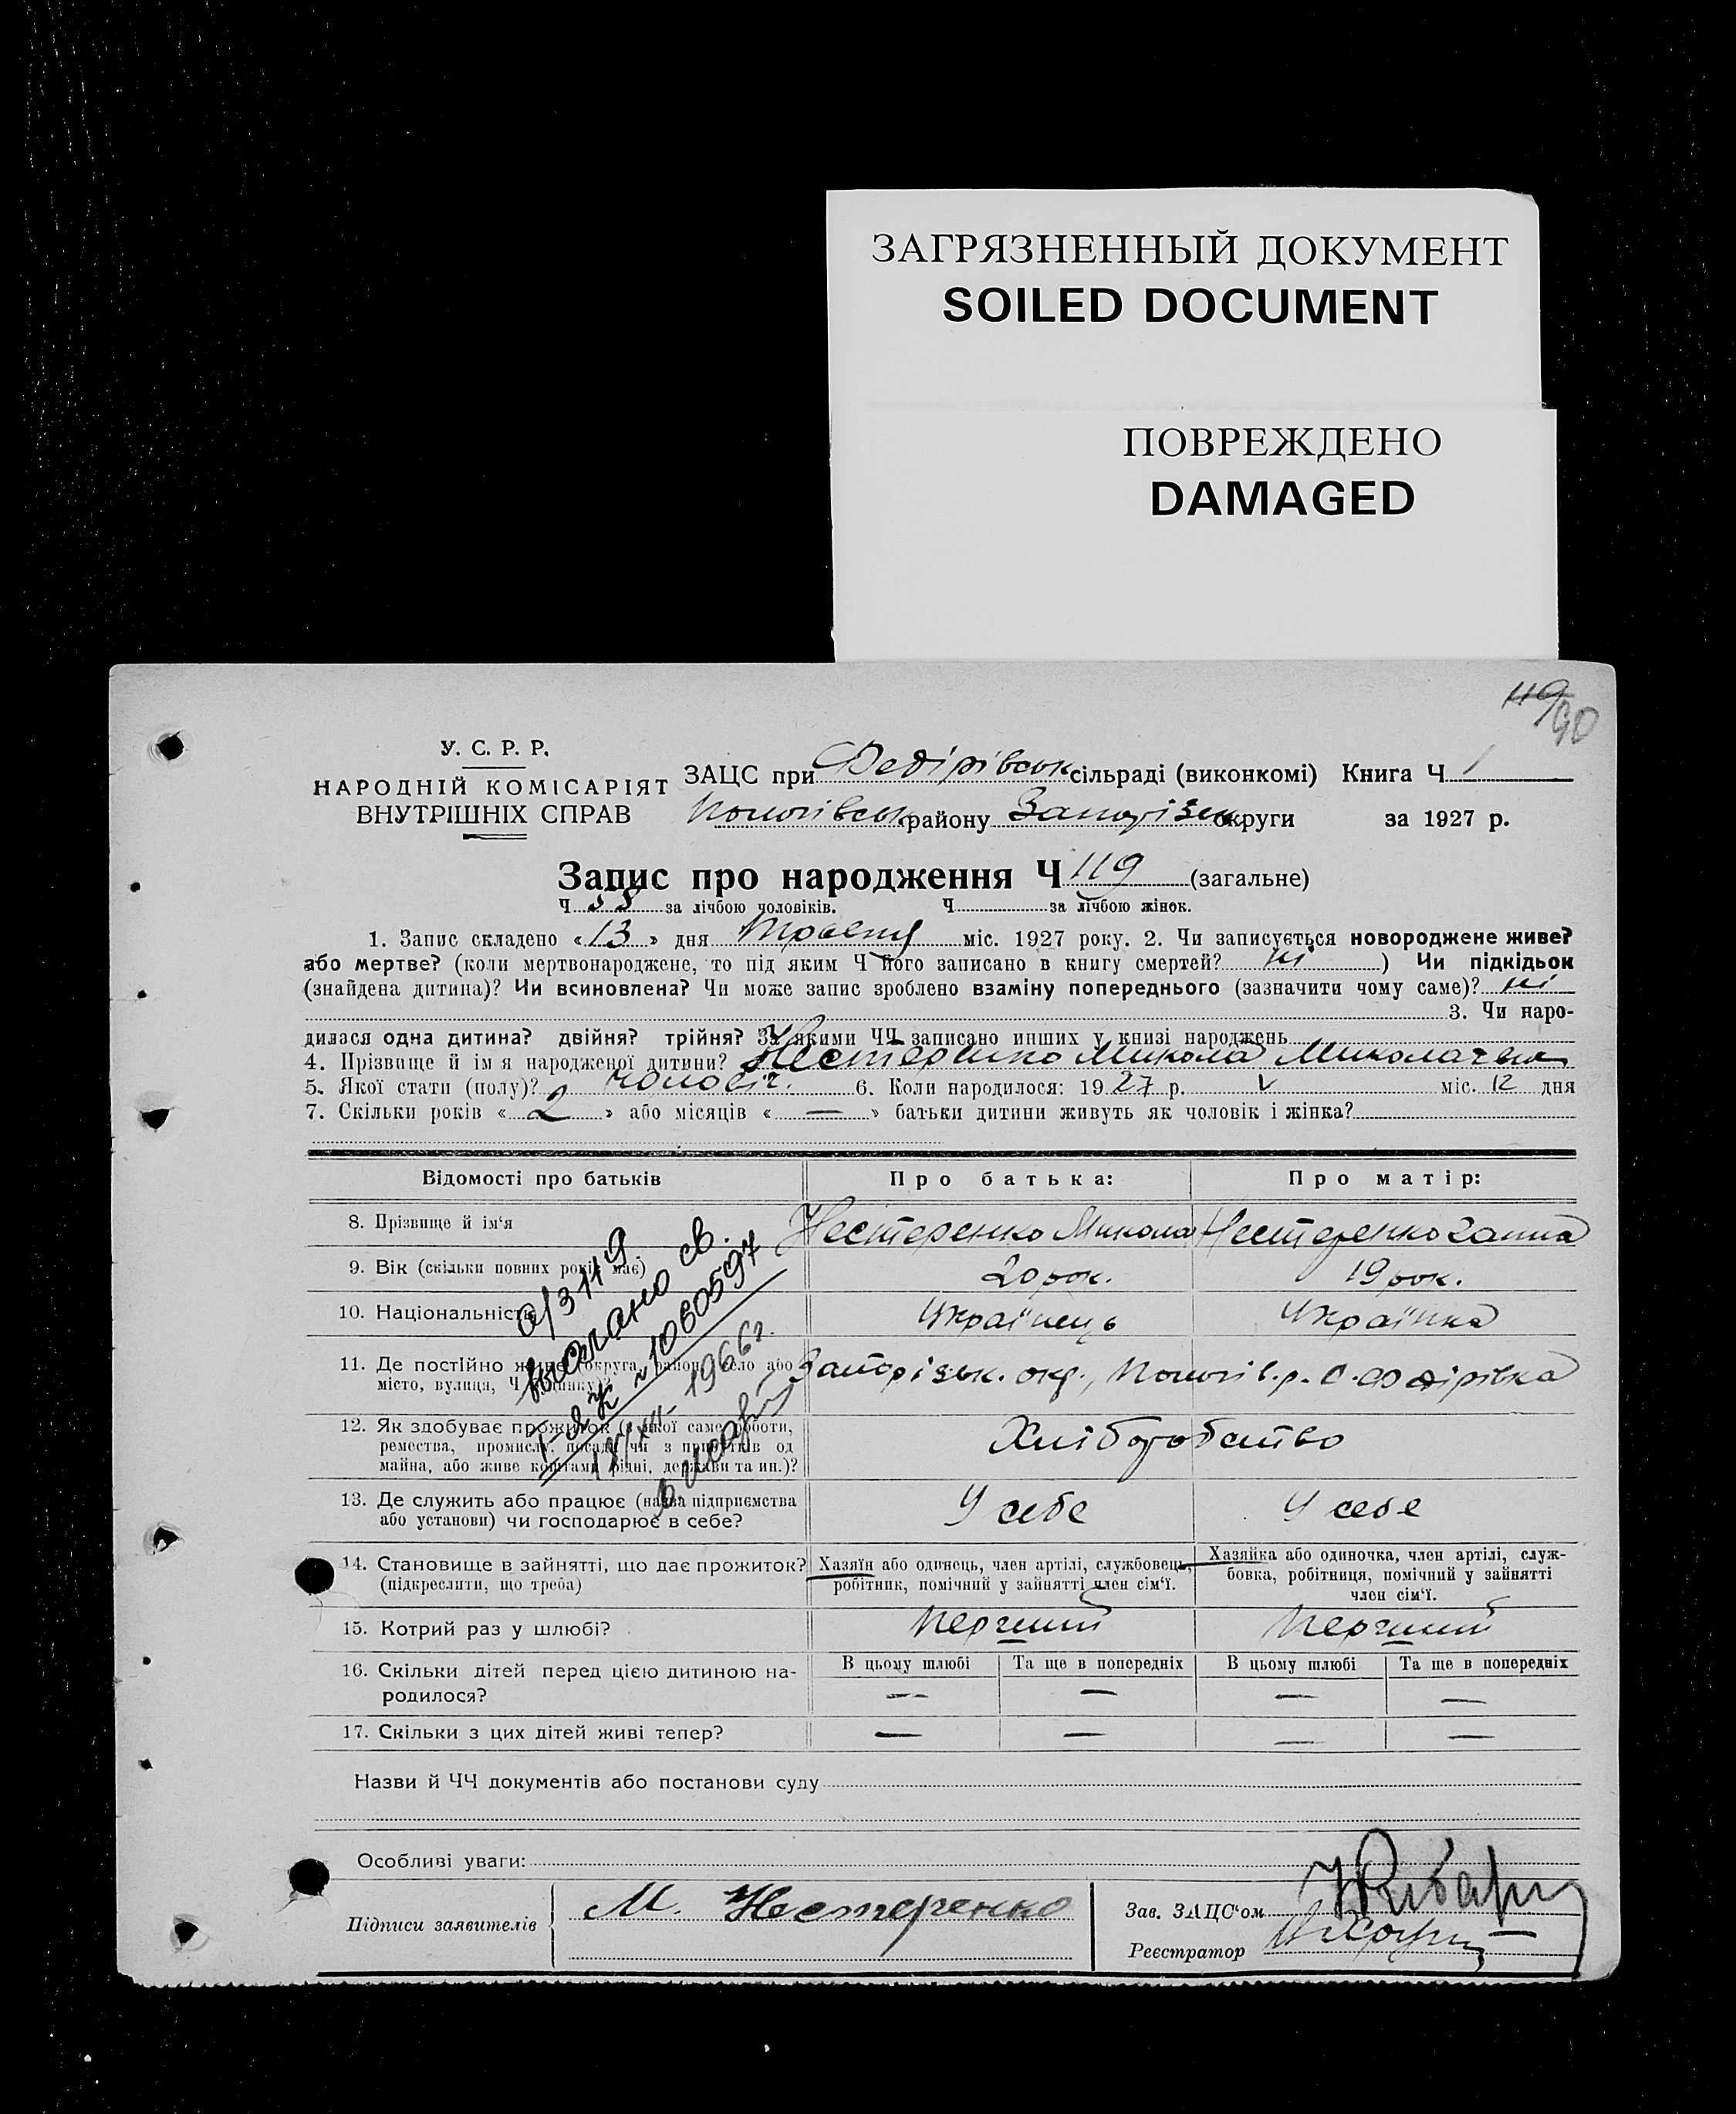 ЗАГРЯЗНЕННЫЙ ДОКУМЕНТ
SOILED DOCUMENT
ПОВРЕЖДЕНО
DAMAGED
119/90
У. С. Р. Р.
НАРОДНІЙ КОМІСАРІЯТ
ВНУТРІШНІХ СПРАВ
ЗАЦС при Федірівськ сільраді (виконкомі) Книга Ч 1
Пологівськ району Запорізьк округи за 1927 р.
Запис про народження Ч 119 (загальне)
Ч 58 за лічбою чоловіків. Ч за лічбою жінок.
1. Запис складено «13» дня Травня міс. 1927 року. 2. Чи записується новороджене живе?
або мертве? (коли мертвонароджене, то під яким Ч його записано в книгу смертей? ні ) Чи підкідьок
(знайдена дитина)? Чи всиновлена? Чи може запис зроблено взаміну попереднього (зазначити чому саме)? ні
3. Чи наро-
дилася одна дитина? двійня? трійня? За якими ЧЧ записано инших у книзі народжень
4. Прізвище й ім я народженої дитини? Нестеренко Микола Миколаєвич
5. Якої стати (полу)? чоловіч. 6. Коли народилося: 1927 р. V міс. 12 дня
7. Скільки років « 2 » або місяців « — » батьки дитини живуть як чоловік і жінка?
Відомості про батьків Про батька: Про матір:
8. Прізвище й ім'я Нестеренко Микола Нестеренко Ганна
9. Вік (скільки повних років має) 20 рок. 19 рок.
10. Національність Українець Українка
11. Де постійно живе (округа, район, село або
місто, вулиця, Ч будинку)? Запорізьк. окр., Пологів. р. с. Федірівка
12. Як здобуває прожиток (з якої саме роботи,
ремества, промислу, посади чи з прибутків од
майна, або живе коштами рідні, держави та ин.)? Хліборобство
13. Де служить або працює (назва підприємства
або установи) чи господарює в себе? У себе У себе
14. Становище в зайнятті, що дає прожиток?
(підкреслити, що треба)
Хазяїн або одинець, член артілі, службовець,
робітник, помічний у зайнятті член сім'ї.
Хазяйка або одиночка, член артілі, служ-
бовка, робітниця, помічний у зайнятті
член сім'ї.
15. Котрий раз у шлюбі? Перший Перший
16. Скільки дітей перед цією дитиною на-
родилося?
В цьому шлюбі Та ще в попередніх В цьому шлюбі Та ще в попередніх
— — — —
17. Скільки з цих дітей живі тепер? — — — —
а/з 119.
выслано св.
I-ЯК №1060597
1966г.
Назви й ЧЧ документів або постанови суду
Особливі уваги:
Підписи заявителів М. Нестеренко
Зав. ЗАЦС'ом
Реєстратор